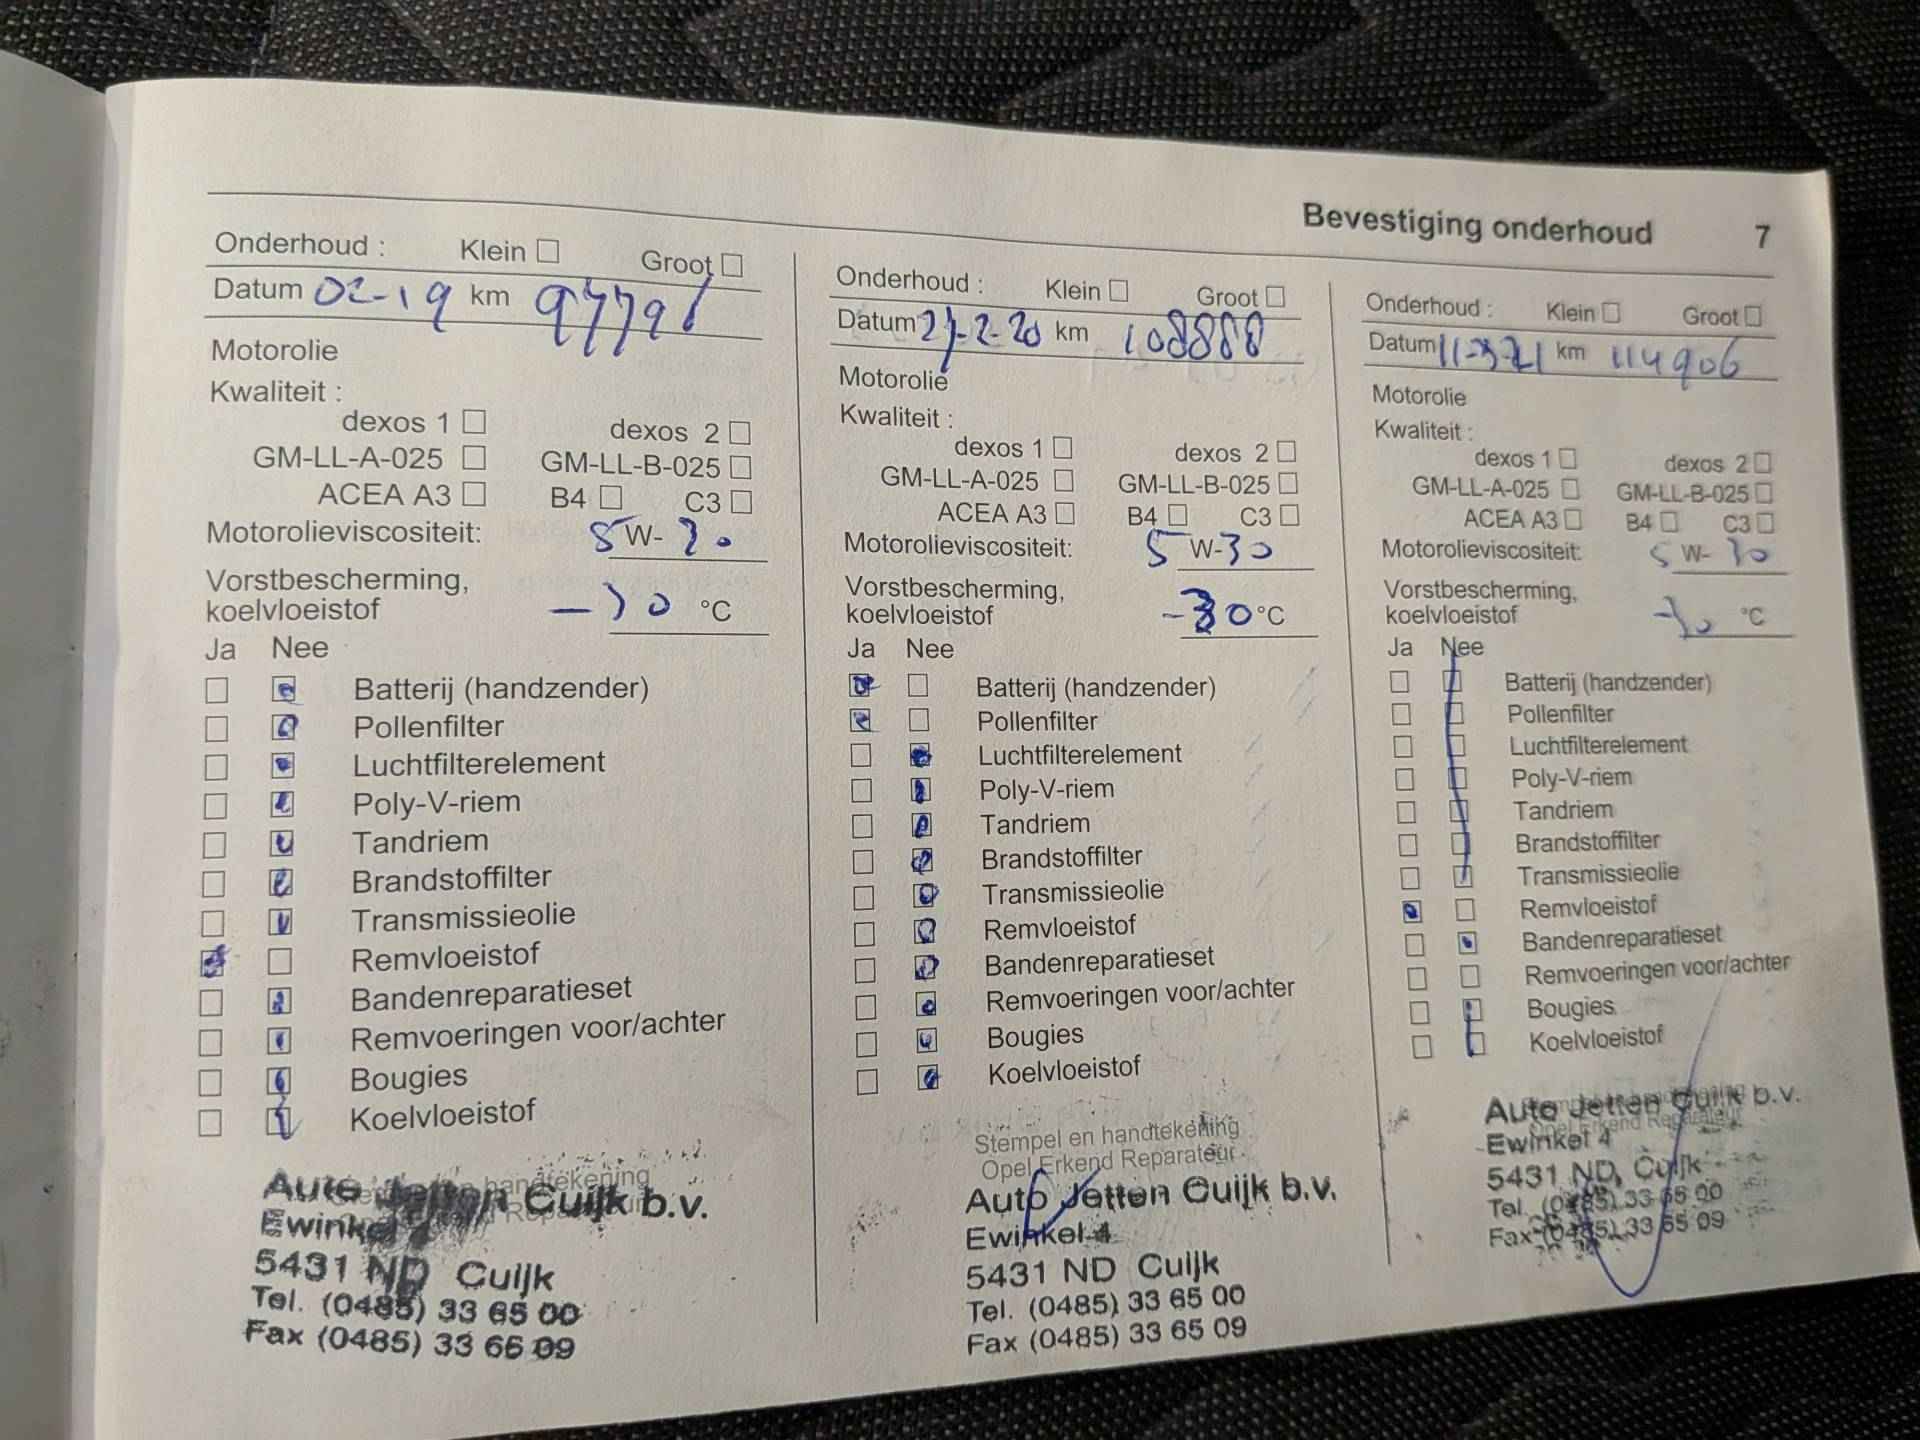 Bevestiging onderhoud 7
Onderhoud : Klein Groot
Datum 02-19 km 97791
Motorolie
Kwaliteit :
dexos 1 dexos 2
GM-LL-A-025 GM-LL-B-025
ACEA A3 B4 C3
Motorolieviscositeit: 5 W- 30
Vorstbescherming,
koelvloeistof -30 °C
Ja Nee
Batterij (handzender)
Pollenfilter
Luchtfilterelement
Poly-V-riem
Tandriem
Brandstoffilter
Transmissieolie
Remvloeistof
Bandenreparatieset
Remvoeringen voor/achter
Bougies
Koelvloeistof
Auto Jetten Cuijk b.v.
Ewinkel 4
5431 ND Cuijk
Tel. (0485) 33 65 00
Fax (0485) 33 65 09
Onderhoud : Klein Groot
Datum 21-2-20 km 108888
Motorolie
Kwaliteit :
dexos 1 dexos 2
GM-LL-A-025 GM-LL-B-025
ACEA A3 B4 C3
Motorolieviscositeit: 5 W-30
Vorstbescherming,
koelvloeistof -30 °C
Ja Nee
Batterij (handzender)
Pollenfilter
Luchtfilterelement
Poly-V-riem
Tandriem
Brandstoffilter
Transmissieolie
Remvloeistof
Bandenreparatieset
Remvoeringen voor/achter
Bougies
Koelvloeistof
Stempel en handtekening
Opel Erkend Reparateur
Auto Jetten Cuijk b.v.
Ewinkel 4
5431 ND Cuijk
Tel. (0485) 33 65 00
Fax (0485) 33 65 09
Onderhoud : Klein Groot
Datum 11-3-21 km 114906
Motorolie
Kwaliteit :
dexos 1 dexos 2
GM-LL-A-025 GM-LL-B-025
ACEA A3 B4 C3
Motorolieviscositeit: 5 W- 30
Vorstbescherming,
koelvloeistof -30 °C
Ja Nee
Batterij (handzender)
Pollenfilter
Luchtfilterelement
Poly-V-riem
Tandriem
Brandstoffilter
Transmissieolie
Remvloeistof
Bandenreparatieset
Remvoeringen voor/achter
Bougies
Koelvloeistof
Auto Jetten Cuijk b.v.
Opel Erkend Reparateur
Ewinkel 4
5431 ND Cuijk
Tel. (0485) 33 65 00
Fax (0485) 33 65 09